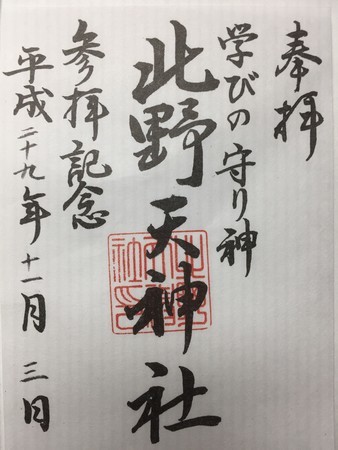 奉拝
学びの守り神
北野天神社
参拝記念
平成二十九年十一月三日